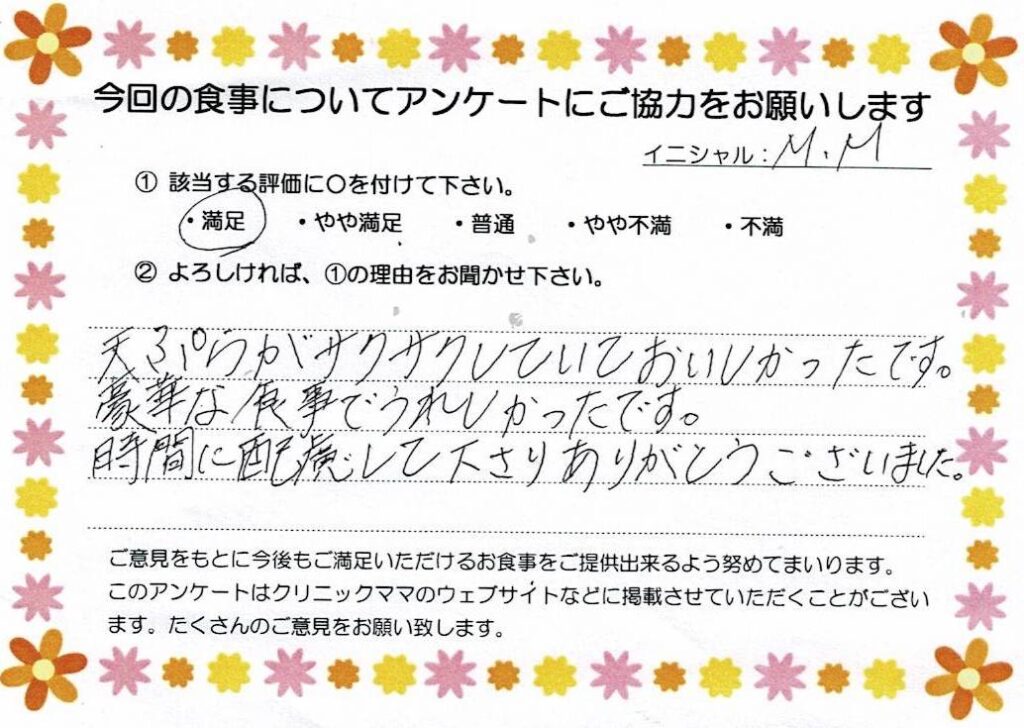 今回の食事についてアンケートにご協力をお願いします
イニシャル：M.M
① 該当する評価に〇を付けて下さい。
・満足 ・やや満足 ・普通 ・やや不満 ・不満
② よろしければ、①の理由をお聞かせ下さい。
天ぷらがサクサクしていておいしかったです。
豪華な食事でうれしかったです。
時間に配慮して下さりありがとうございました。
ご意見をもとに今後もご満足いただけるお食事をご提供出来るよう努めてまいります。
このアンケートはクリニックママのウェブサイトなどに掲載させていただくことがござい
ます。たくさんのご意見をお願い致します。